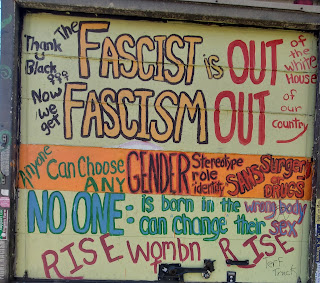 Thank The FASCIST is OUT of
u the white
Black ♀♀♀ House
Now we get FASCISM OUT of our country
Anyone Can Choose ANY GENDER Stereotype role identity SANS Surgery DRUGS
NO ONE: is born in the wrong body
can change their sex
RISE Wombn RISE
Terf Track